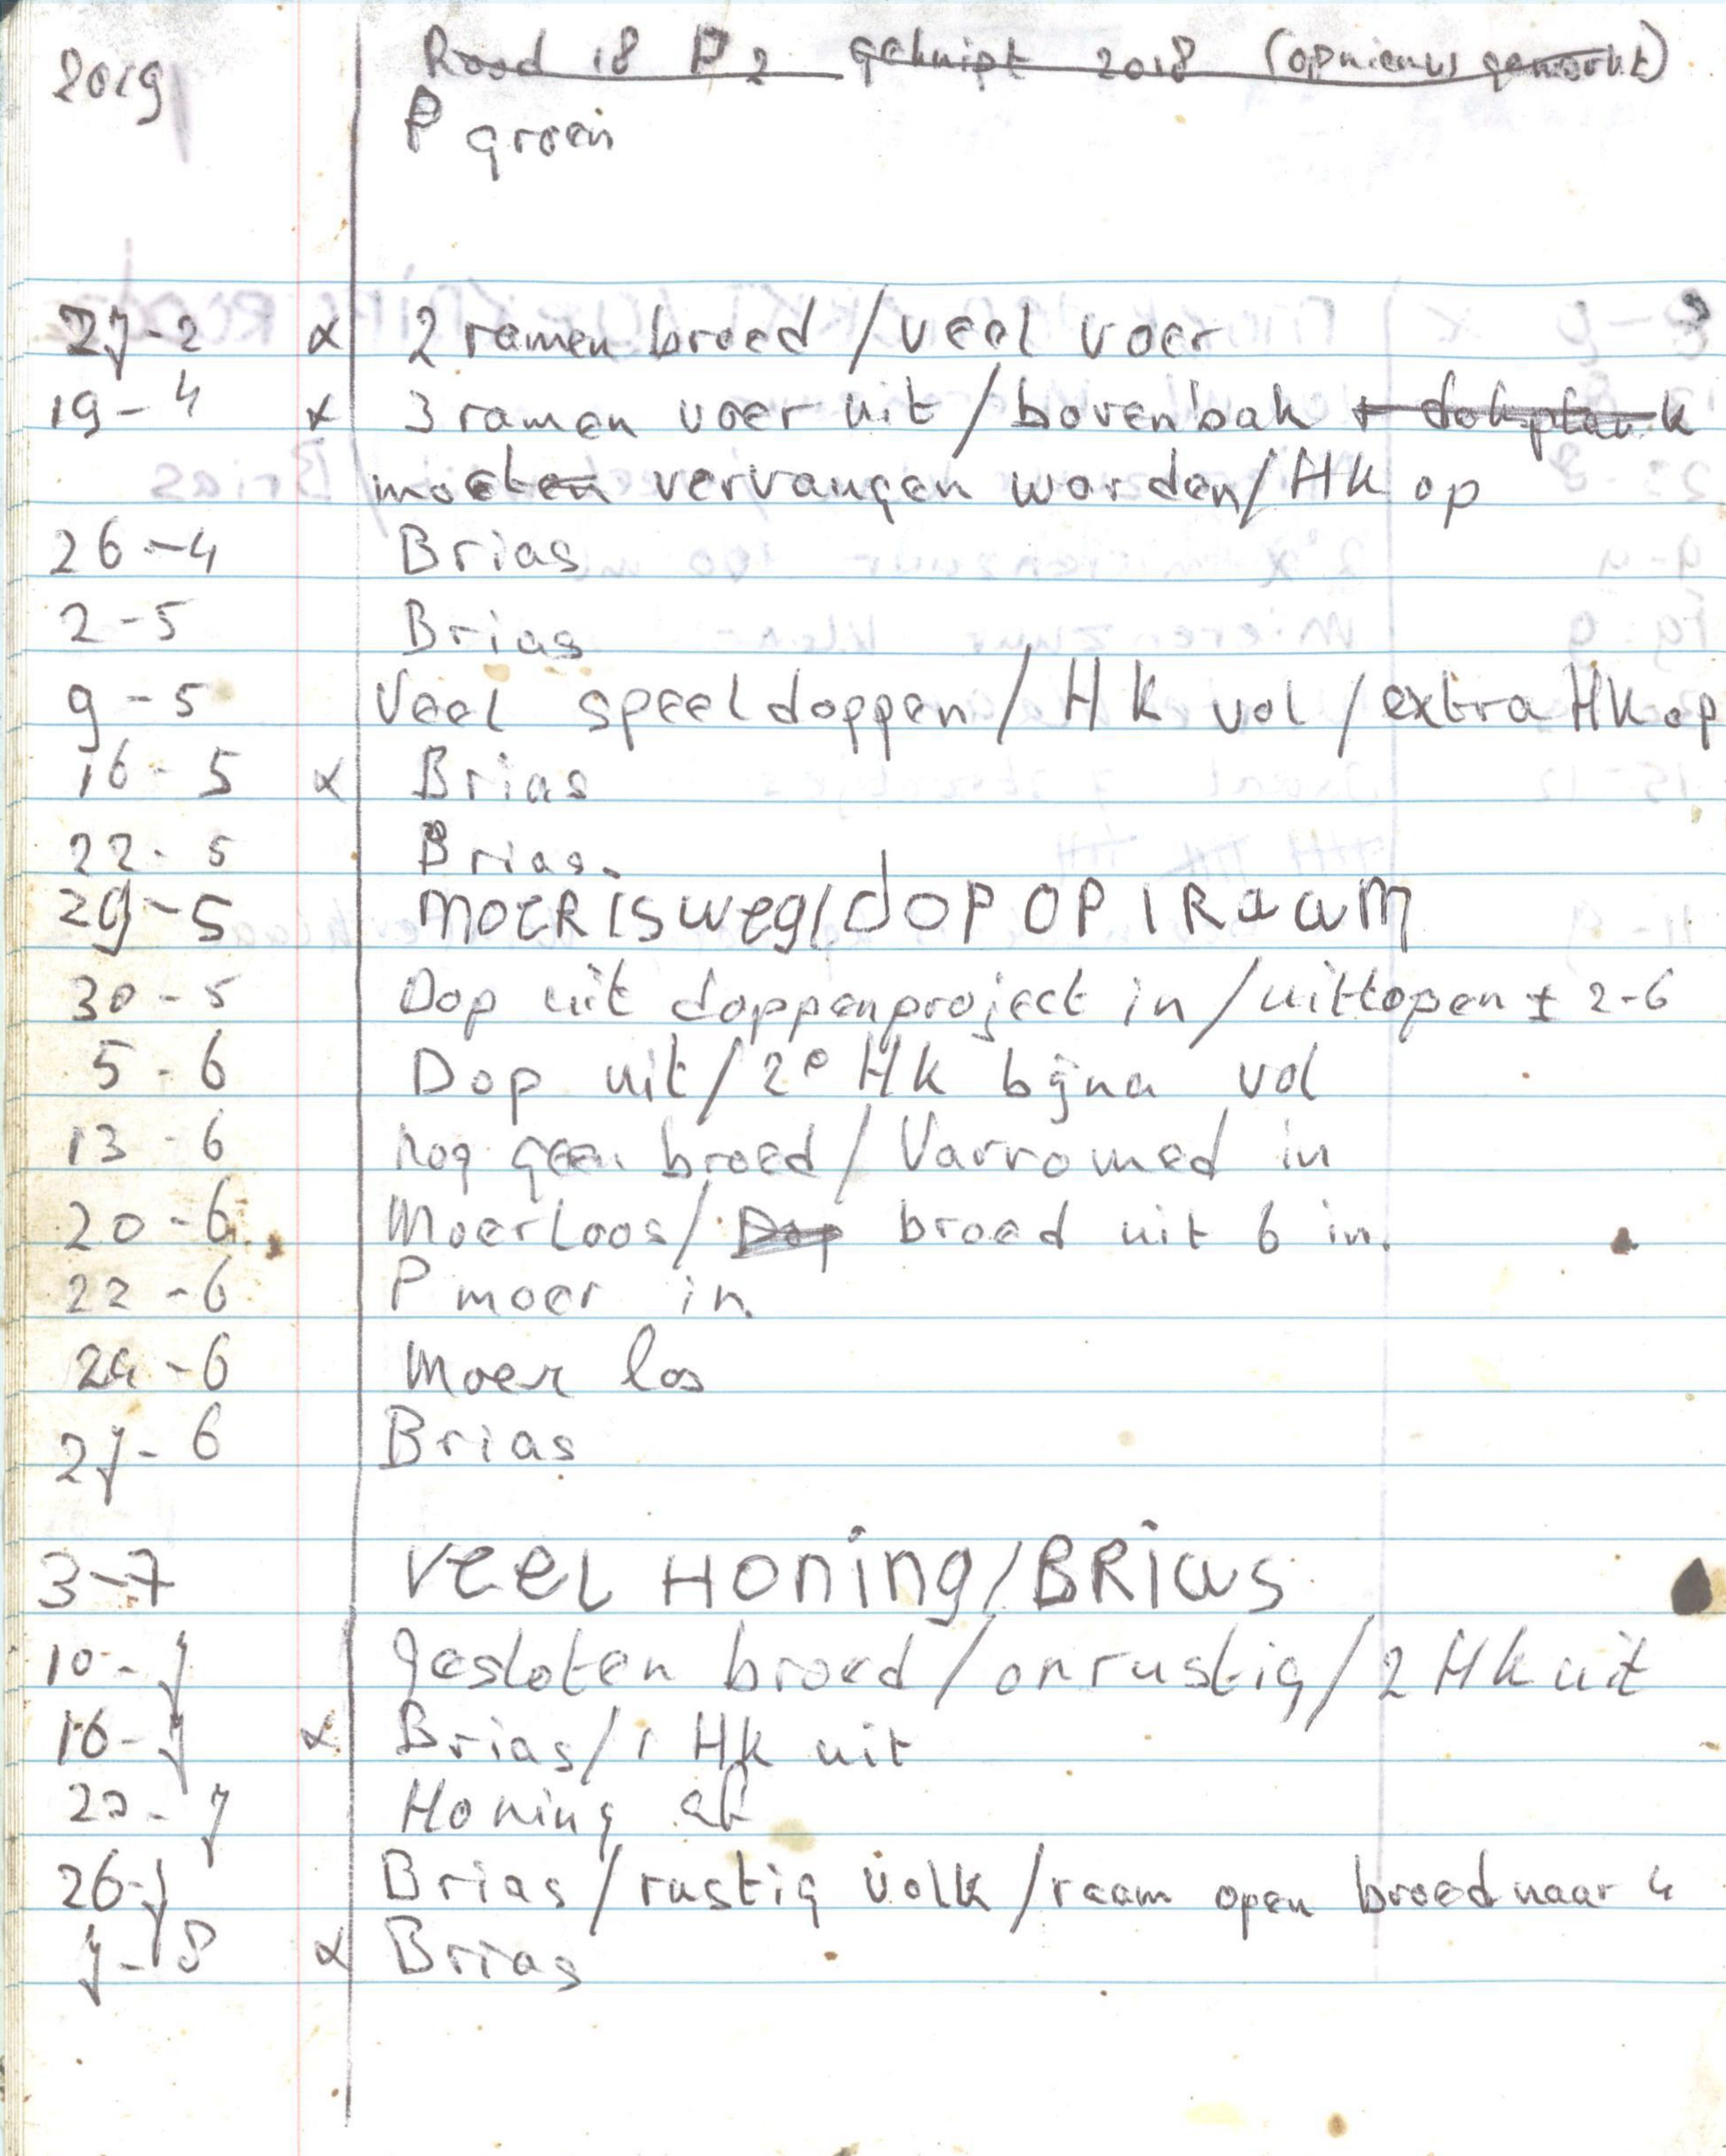 2019 Rood 18 P2 geknipt 2018 (opnieuw gemerkt)
P groen
27-2 x 2 ramen broed / veel voer
19-4 x 3 ramen voer uit / bovenbak + dakplank
moeten vervangen worden / HK op
26-4 Brias
2-5 Brias
9-5 Veel speeldoppen / HK vol / extra HK op
16-5 x Brias
22-5 Brias.
29-5 MOER IS weg / dOP OP 1 RaaM
30-5 Dop uit doppenproject in / uitlopen ± 2-6
5-6 Dop uit / 2e HK bijna vol
13-6 nog geen broed / Varromed in
20-6 Moerloos / Dop broed uit 6 in.
22-6 P moer in
24-6 Moer los
27-6 Brias
3-7 VeeL Honing / BRias
10-7 gesloten broed / onrustig / 2 HK uit
16-7 x Brias / 1 HK uit
22-7 Honing af
26-7 Brias / rustig volk / raam open broed naar 4
7-8 x Brias